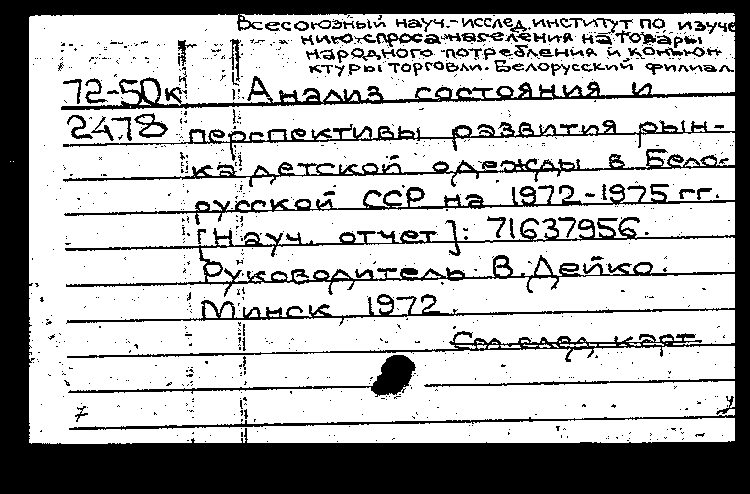 Всесоюзный науч.-исслед. институт по изуче
нию спроса населения на товары
народного потребления и конъюн
ктуры торговли. Белорусский филиал.
72-50к Анализ состояния и
2478 перспективы развития рын-
ка детской одежды в Бело-
русской ССР на 1972-1975 гг.
[Науч. отчет]: 71637956.
Руководитель В. Дейко.
Минск, 1972.
См. след. карт.
7